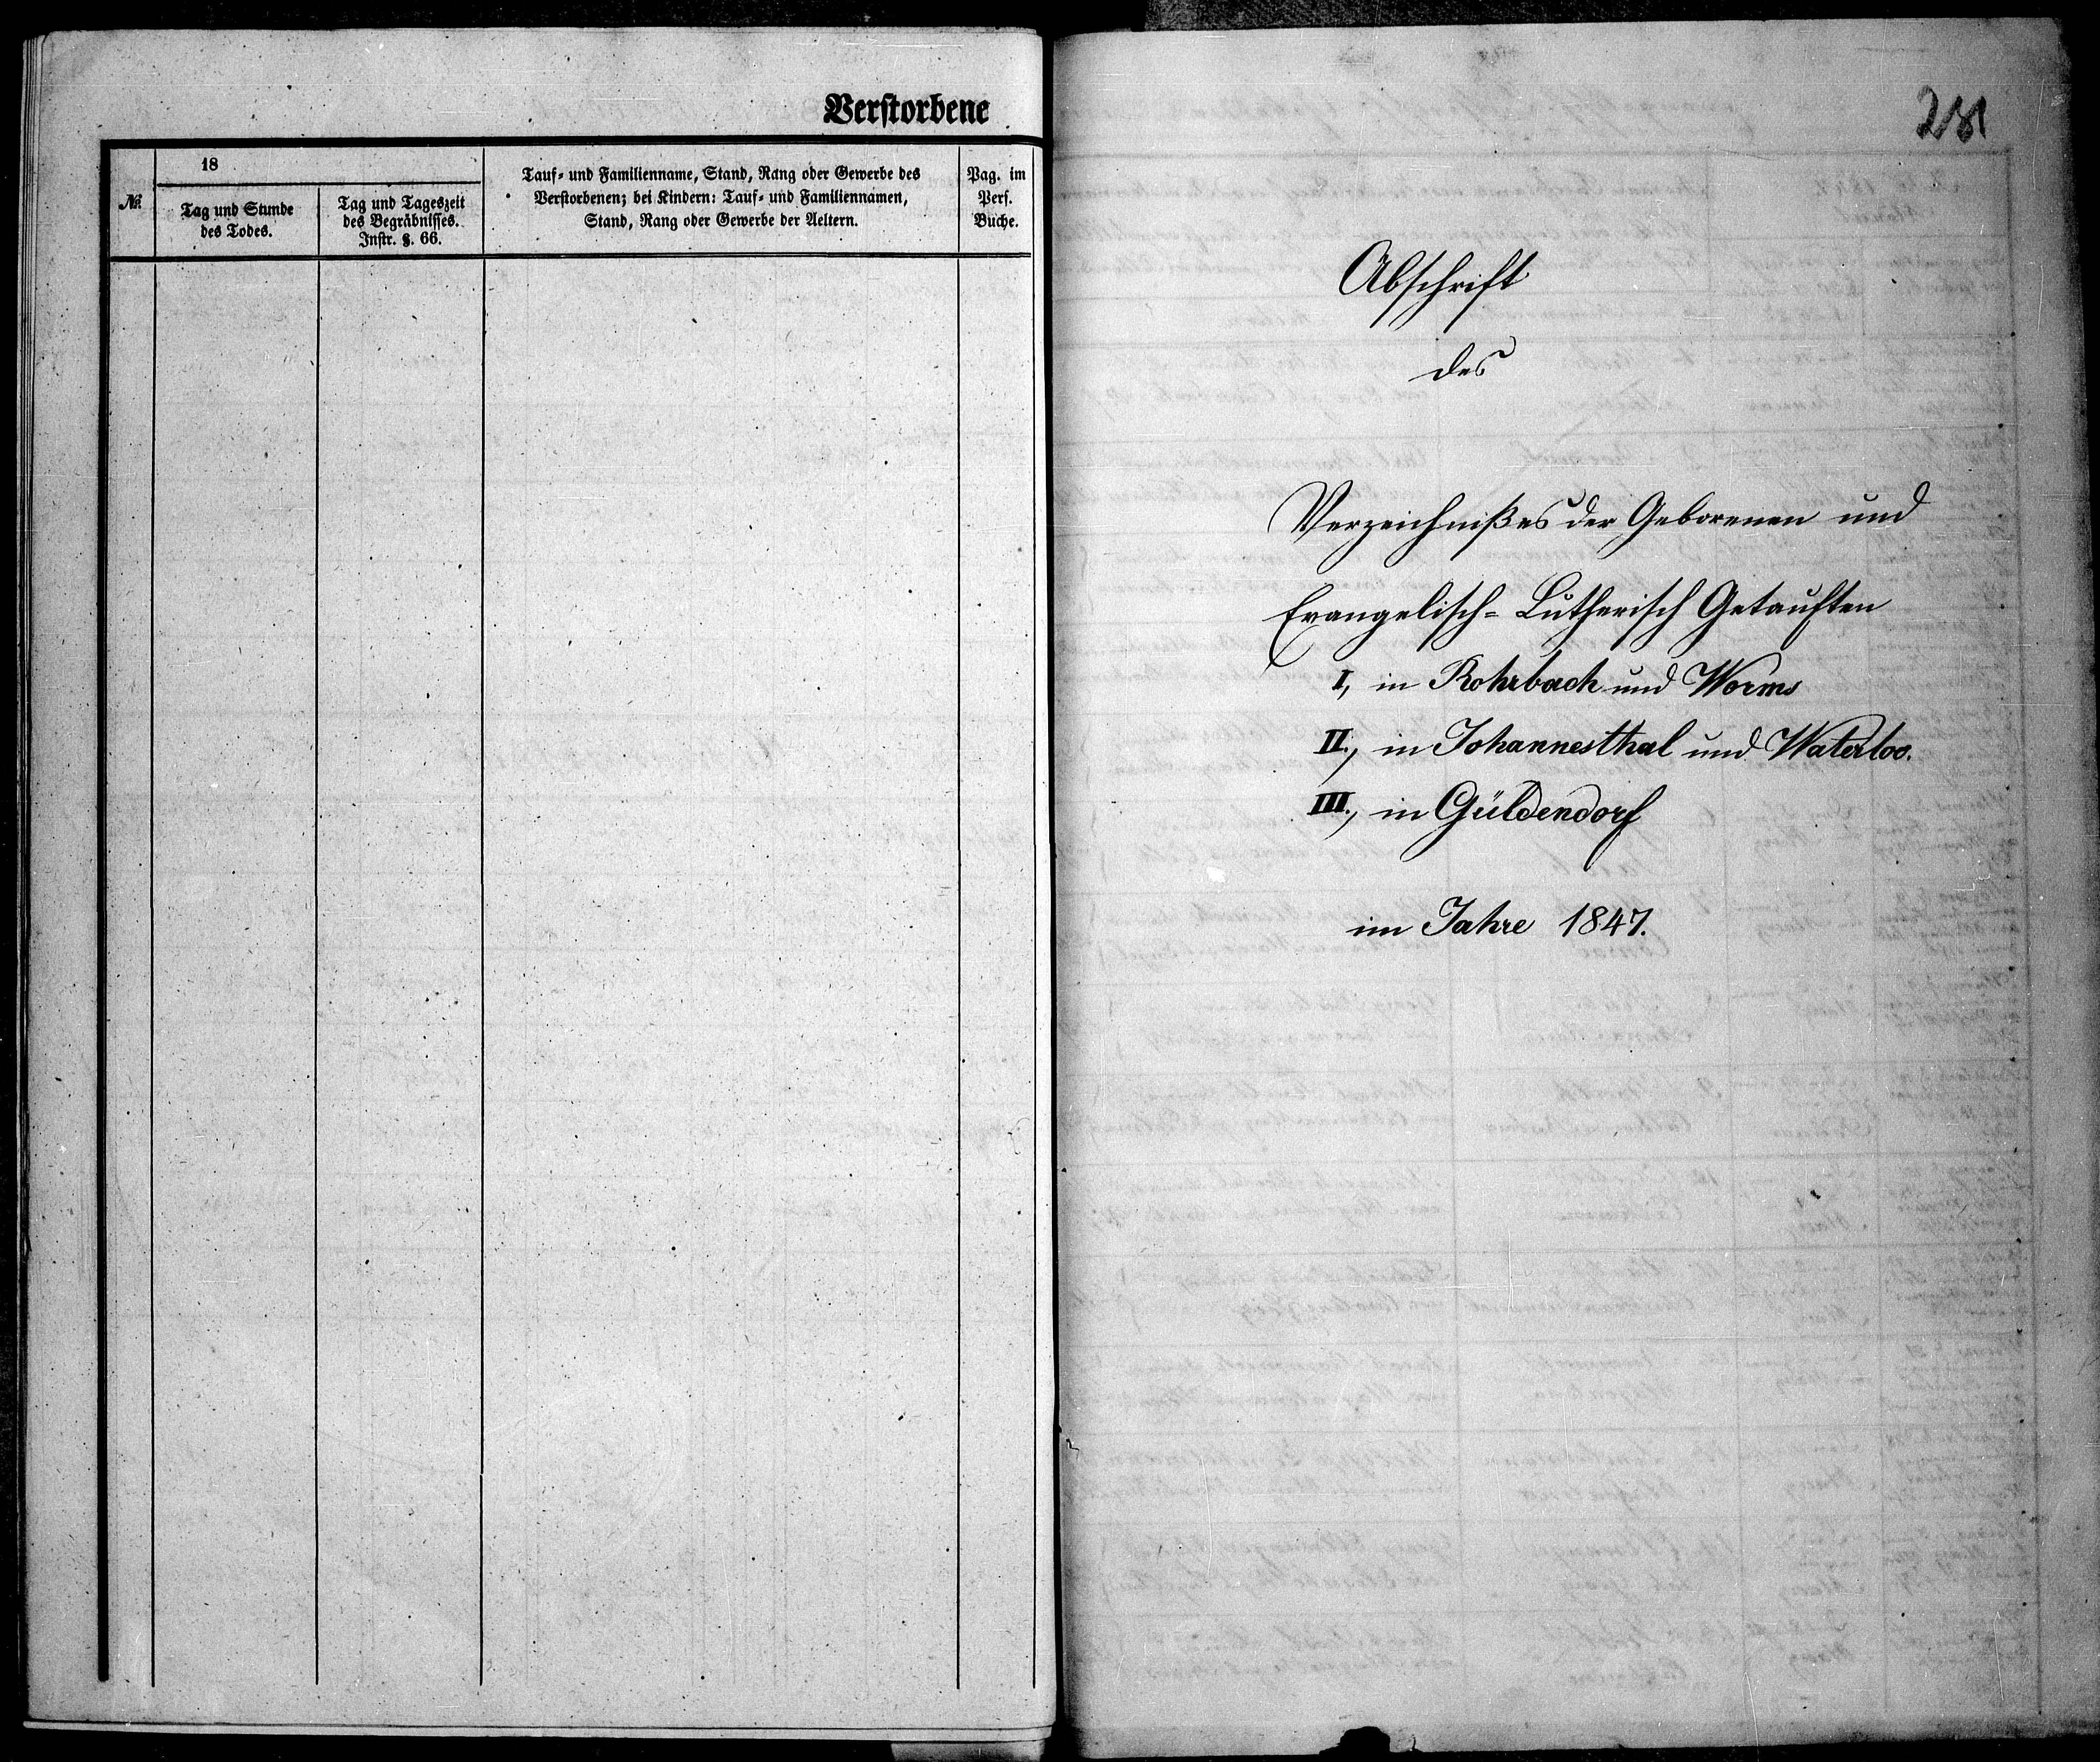 Verstorbene
№
18
Tag und Stunde
des Todes.
Tag und Tageszeit
des Begräbnisses.
Instr. §. 66.
Tauf- und Familienname, Stand, Rang oder Gewerbe des
Verstorbenen; bei Kindern: Tauf- und Familiennamen,
Stand, Rang oder Gewerbe der Aeltern.
Pag. im
Pers.
Buche.
281
Abschrift
des
Verzeichnißes der Geborenen und
Evangelisch-Lutherisch Getauften
I, in Rohrbach und Worms
II., in Johannesthal und Waterloo.
III., in Güldendorf
im Jahre 1847.